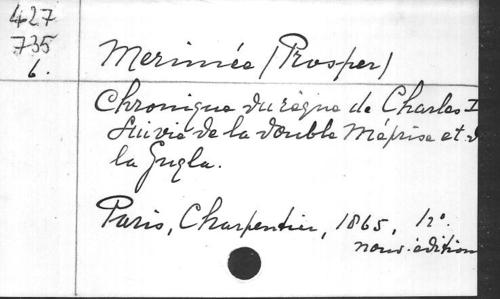 427
735
6.
Merimée (Prosper)
Chronique du règne de Charles I
Suivie de la double Méprise et d
la Guzla.
Paris, Charpentier, 1865, 12°.
nouv. édition